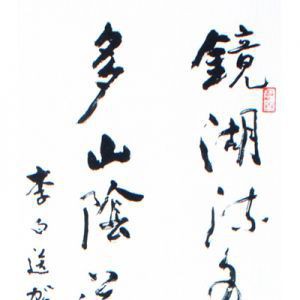 鏡湖流水
多山陰
李白送賀